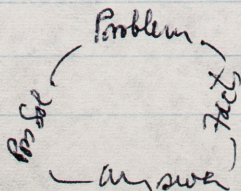 Problem
Fact
answer